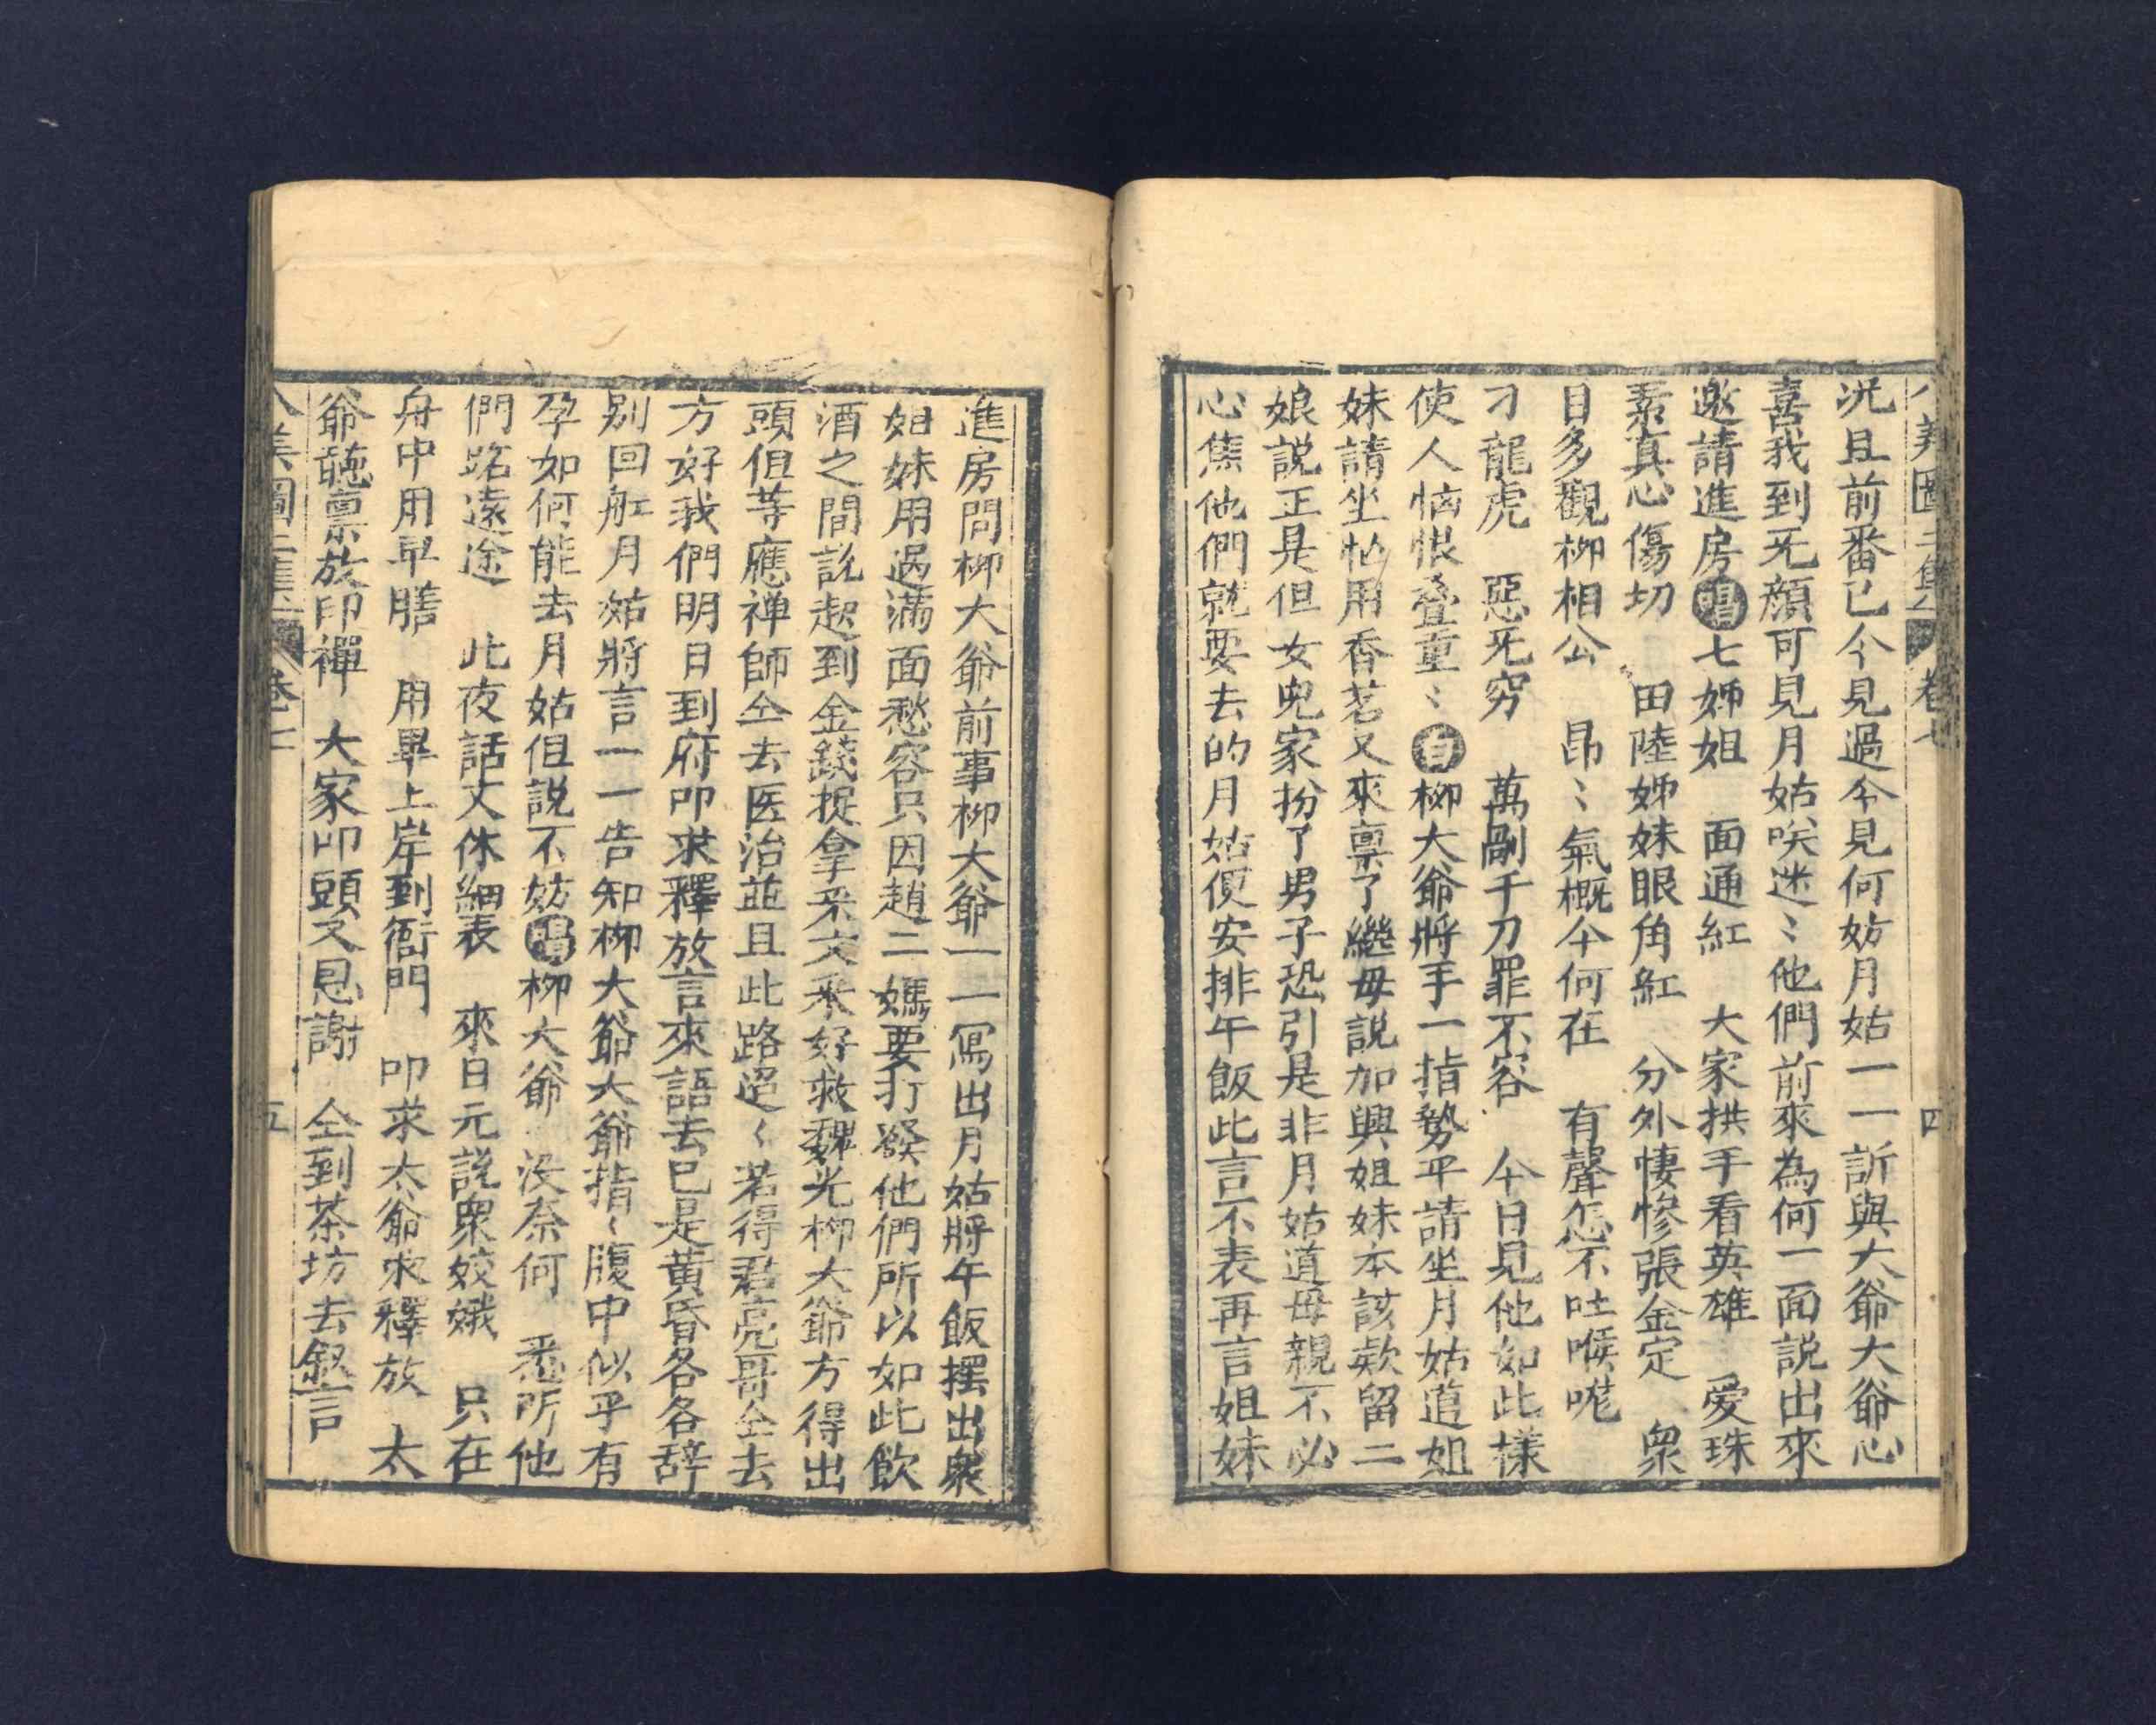 八美圖二集 卷七 四
況且前番已今見過今見何妨月姑一一訴與大爺大爺心
喜我到死顔可見月姑咲迷〻他們前來為何一面説出來
邀請進房唱七姊姐 面通紅 大家拱手看英雄 愛珠
素真心傷切 田陸姊妹眼角紅 分外悽慘張金定 衆
目多觀柳相公 昂〻氣概今何在 有聲怎不吐喉嚨
刁龍虎 惡死穷 萬剮千刀罪不容 今日見他如此樣
使人惱恨叠重〻白柳大爺將手一指勢平請坐月姑道姐
妹請坐忙用香茗又來禀了繼母説加興姐妹本該欵留二
娘説正是但女兒家扮了男子恐引是非月姑道母親不必
心焦他們就要去的月姑便安排午飯此言不表再言姐妹
進房問柳大爺前事柳大爺一一冩出月姑將午飯擺出衆
姐妹用過滿面愁容只因趙二媽要打發他們所以如此飲
酒之間説起到金錢捉拿采文采好救魏光柳大爺方得出
頭但等應禅師仝去医治並且此路遥〻若得君亮哥仝去
方好我們明日到府叩求釋放言來語去已是黃昏各各辞
别回舡月姑將言一一告知柳大爺大爺指〻腹中似乎有
孕如何能去月姑但説不妨唱柳大爺 没奈何 悉听他
們路遠途 此夜話文休細表 來日元説衆姣娥 只在
舟中用早膳 用畢上岸到衙門 叩求太爺求釋放 太
爺聽禀放印禪 大家叩頭又恩謝 仝到茶坊去叙言
八美圖二集 卷七 五